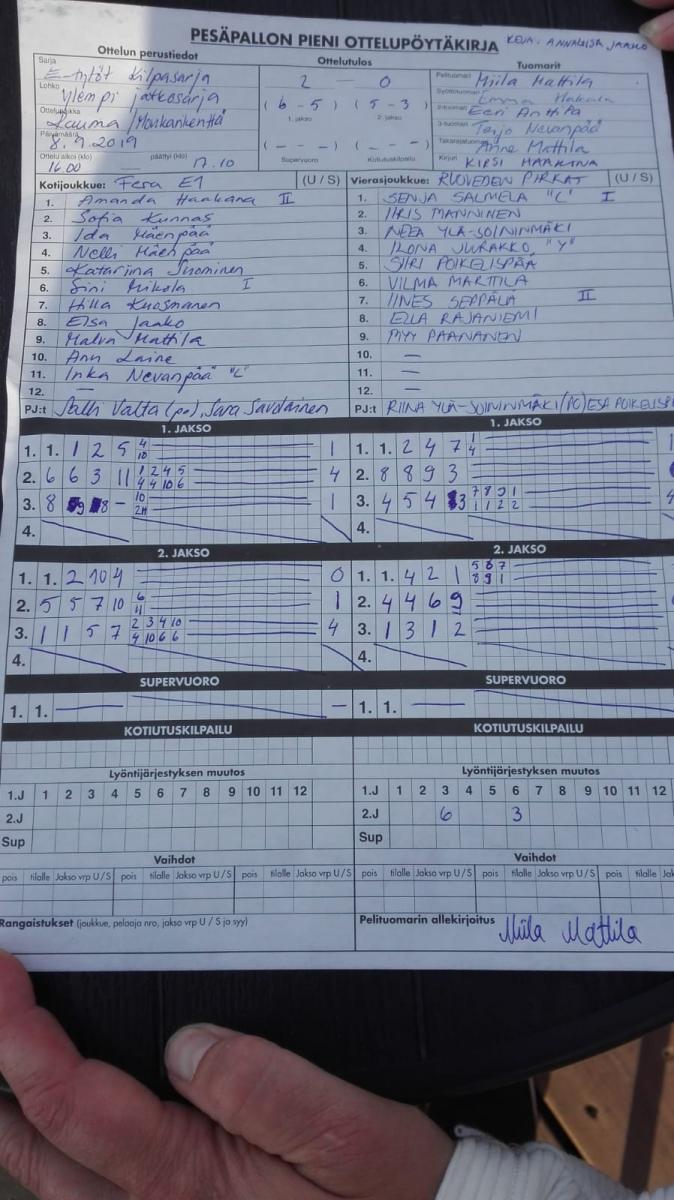 PESÄPALLON PIENI OTTELUPÖYTÄKIRJA
Ottelun perustiedot
Ottelutulos
Tuomarit
Sarja E-tytöt kilpasarja
Lohko Ylempi jatkosarja
Ottelupaikka Rauma
Päivämäärä 8.9.2019
Ottelu alkoi (klo) 16.00 päättyi (klo) 17.10
2 — 0
( 6 - 5 ) ( 5 - 3 )
1. jakso 2. jakso
( - - - ) ( - - - )
Supervuoro Kotiutuskilpailu
Pelituomari Miila Mattila
Syöttötuomari Emma
2-tuomari Eeri Anttila
3-tuomari Terjo Nevanpää
Takarajatuomari Anne Mattila
Kirjuri KIRSI HAAKANA
Kotijoukkue: Fera E1 (U / S)
1. Amanda Haakana II
2. Sofia Kunnas
3. Ida Mäenpää
4. Nelli Mäenpää
5. Katariina Suominen
6. Sini Mikola I
7. Hilla Kuosmanen
8. Elsa Jaako
9. Malva Mattila
10. Anni Laine
11. Inka Nevanpää "C"
12. —
PJ:t Salli Valta (pj), Sara Savolainen
Vierasjoukkue: RUOVEDEN PIRKAT (U / S)
1. SENJA SALMELA "C" I
2. IIRIS MANNINEN
3. NEEA YLÄ-SOININMÄKI
4. ILONA JUURAKKO "Y"
5. SIIRI POIKELISPÄÄ
6. VILMA MARTTILA
7. IINES SEPPÄLÄ II
8. ELLA RAJANIEMI
9. MYY PAANANEN
10. —
11. —
12. —
PJ:t RIINA YLÄ-SOININMÄKI (PJ) ESA
1. JAKSO
1. 1. 1 2 5 4 10 1
2. 6 6 3 11 1 2 4 5 4 4 10 6 4
3. 8 9 8 - 10 1
4.
1. JAKSO
1. 1. 2 4 7 1 4
2. 8 8 9 3
3. 4 5 4 3 7 8 9 1 1 1 2 2
4.
2. JAKSO
1. 1. 2 10 4 0
2. 5 5 7 10 6 11 1
3. 1 1 5 7 2 3 4 10 4 10 6 6 4
4.
2. JAKSO
1. 1. 4 2 1 5 6 7 8 9 1
2. 4 4 6 9
3. 1 3 1 2
4.
SUPERVUORO
1. 1. — —
SUPERVUORO
1. 1. —
KOTIUTUSKILPAILU
KOTIUTUSKILPAILU
Lyöntijärjestyksen muutos
1.J 1 2 3 4 5 6 7 8 9 10 11 12
2.J
Sup
Lyöntijärjestyksen muutos
1.J 1 2 3 4 5 6 7 8 9 10 11 12
2.J 6 3
Sup
Vaihdot
pois tilalle Jakso vrp U / S pois tilalle Jakso vrp U / S pois tilalle Jakso vrp U / S
Vaihdot
pois tilalle Jakso vrp U / S pois tilalle Jakso vrp U / S pois tilalle
Rangaistukset (joukkue, pelaaja nro, jakso vrp U / S ja syy)
Pelituomarin allekirjoitus Miila Mattila